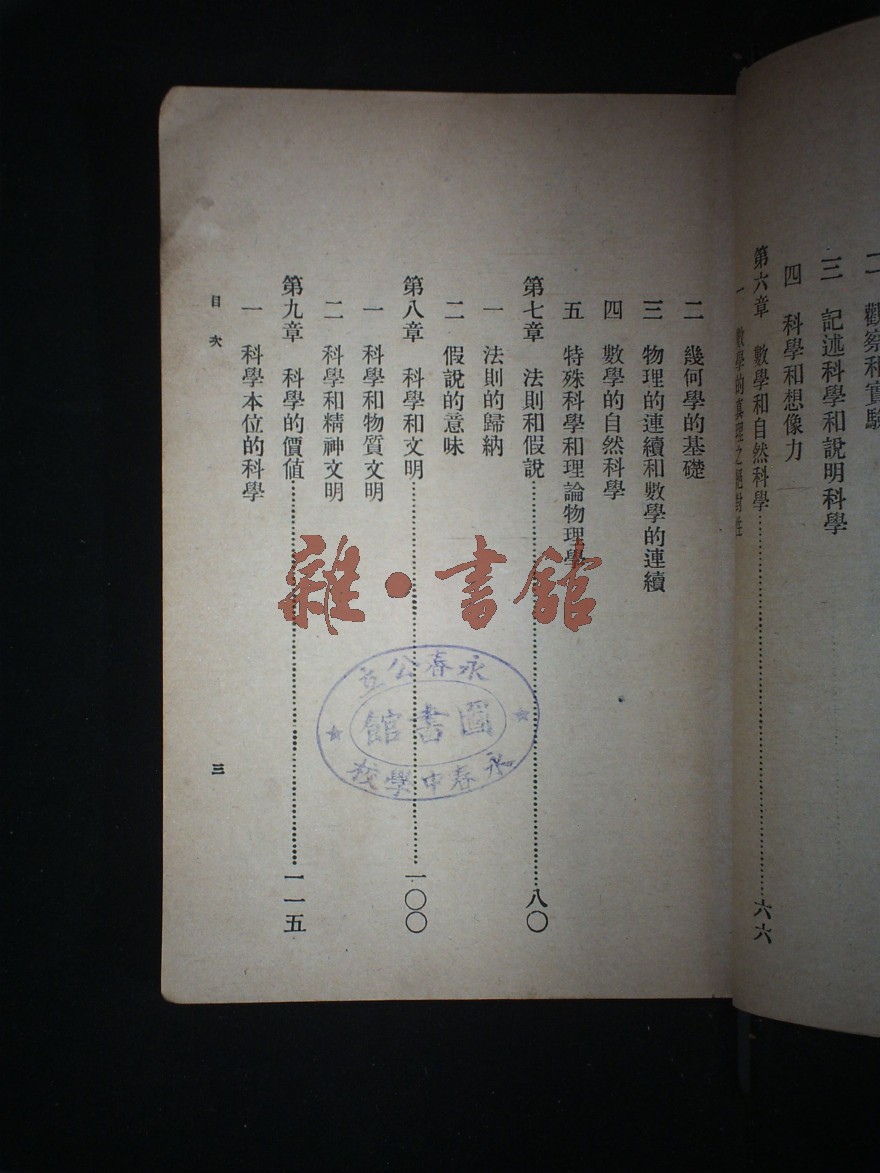 二 觀察和實驗
三 記述科學和說明科學
四 科學和想像力
第六章 數學和自然科學……六六
一 數學的真理之絕對性
二 幾何學的基礎
三 物理的連續和數學的連續
四 數學的自然科學
五 特殊科學和理論物理學
第七章 法則和假說……八〇
一 法則的歸納
二 假說的意味
第八章 科學和文明……一〇〇
一 科學和物質文明
二 科學和精神文明
第九章 科學的價值……一一五
一 科學本位的科學
目次
三
雜·書館
永春公立
圖書館
永春中學校